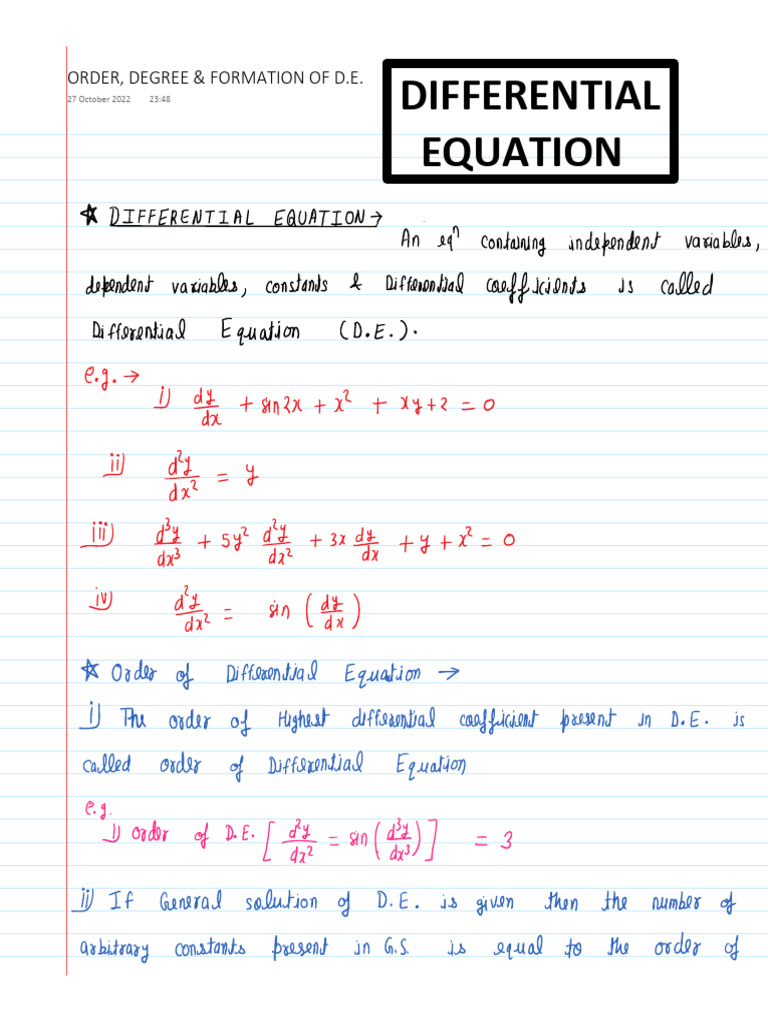 ORDER, DEGREE & FORMATION OF D.E.
27 October 2022 23:48
DIFFERENTIAL
EQUATION
☆ DIFFERENTIAL EQUATION →
An eqⁿ containing independent variables,
dependent variables, constants & Differential coefficients is called
Differential Equation (D.E.).
e.g. →
i) dy/dx + sin2x + x² + xy + 2 = 0
ii) d²y/dx² = y
iii) d³y/dx³ + 5y² d²y/dx² + 3x dy/dx + y + x² = 0
iv) d²y/dx² = sin (dy/dx)
☆ Order of Differential Equation →
i) The order of Highest differential coefficient present in D.E. is
called order of Differential Equation
e.g.
i) order of D.E. [d²y/dx² = sin(d³y/dx³)] = 3
ii) If General solution of D.E. is given then the number of
arbitrary constants present in G.S. is equal to the order of